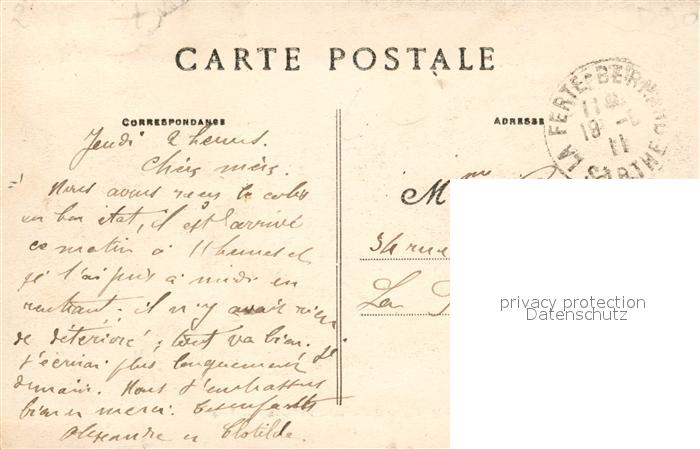 CARTE POSTALE
CORRESPONDANCE
ADRESSE
LA FERTE-BERNARD
11
19 -
11
SARTHE
Jeudi 2 heures.
Chère mère.
Nous avons reçu le colis
en bon état, il est arrivé
ce matin à 11 heures et
je l'ai pris à midi en
rentrant; il n'y avait rien
de détérioré; tout va bien. Je
t'écrirai plus longuement
demain. Nous t'embrassons
bien en merci. Tes enfants
Alexandre et Clotilde.
Mme
34 rue
La
privacy protection
Datenschutz